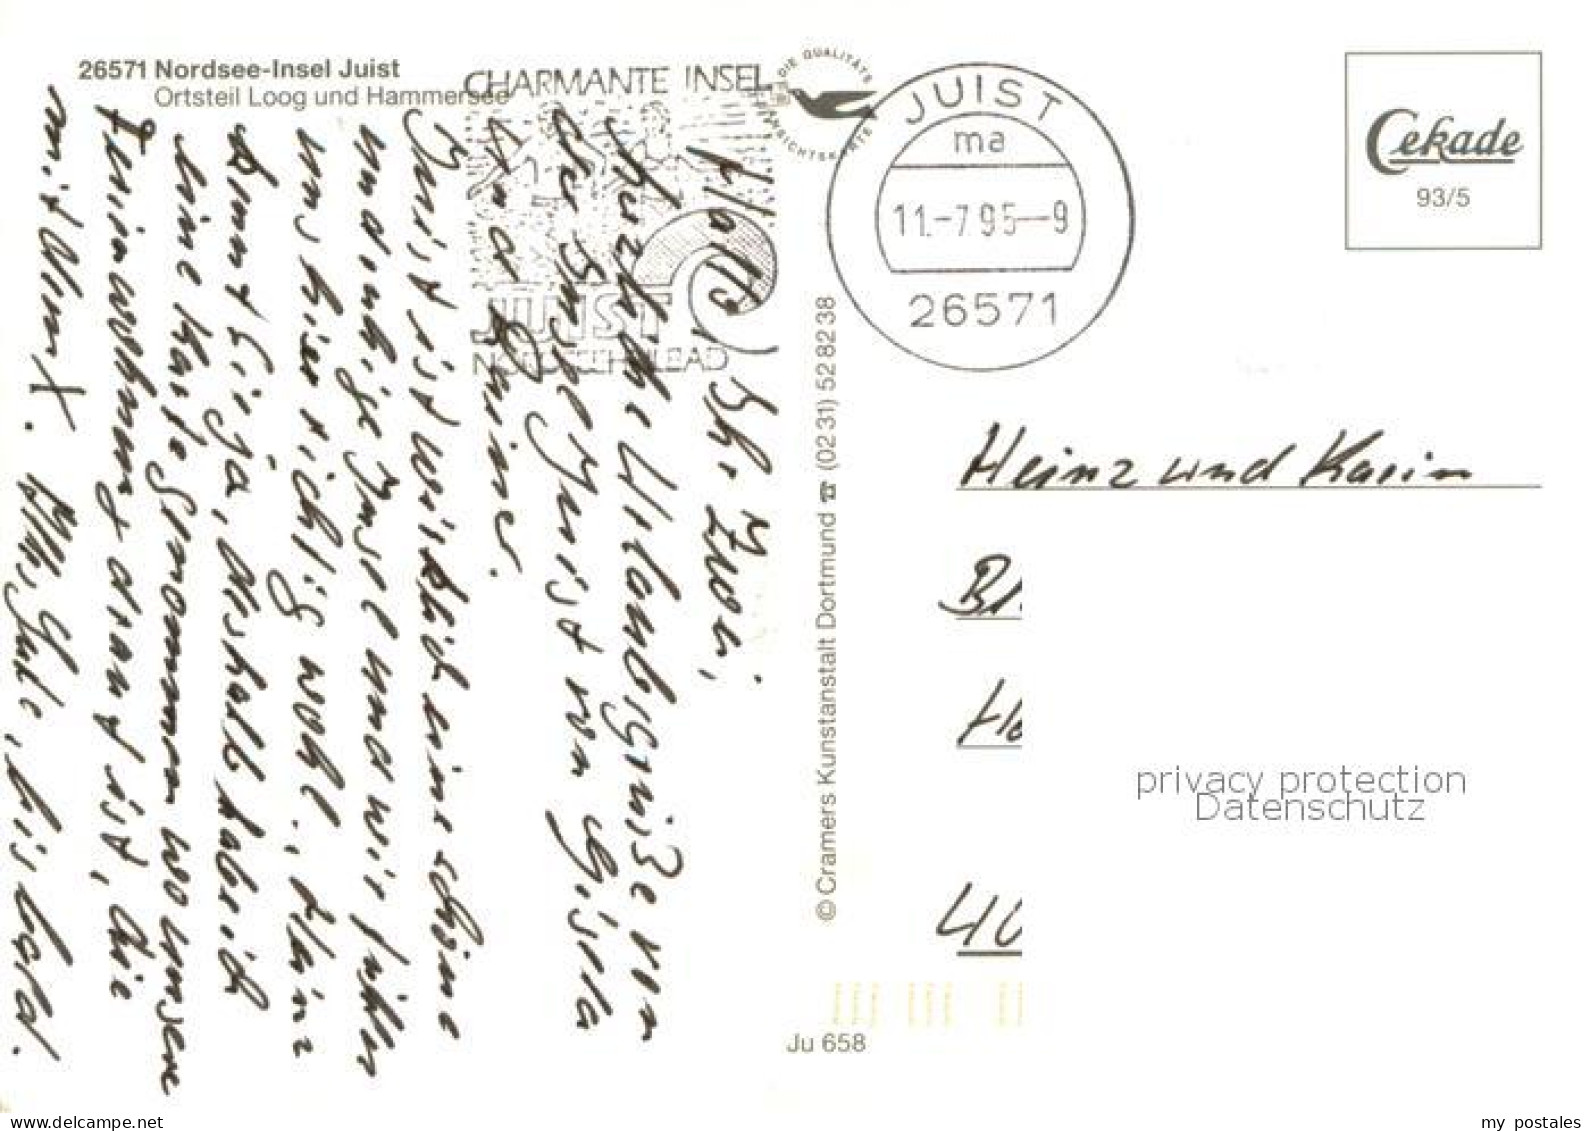 26571 Nordsee-Insel Juist
Ortsteil Loog und Hammersee
CHARMANTE INSEL
JUIST
NORDSEEHEILBAD
DIE QUALITÄTS
ANSICHTSKARTE
JUIST
ma
11.-7.95--9
26571
Cekade
93/5
Hallo, Ihr Zwei,
herzliche Urlaubsgrüße von
der Insel Juist von Gisela
und
Juist ist wirklich eine schöne
und ruhige Insel und wir fühlen
uns hier richtig wohl.
kennt Ihr ja, deshalb habe ich
eine Karte genommen wo unsere
Ferienwohnung drauf ist, die
mit dem X. Alles Gute, bis bald.
© Cramers Kunstanstalt Dortmund ☎ (02 31) 52 82 38
Heinz und Karin
privacy protection
Datenschutz
Ju 658
my postales